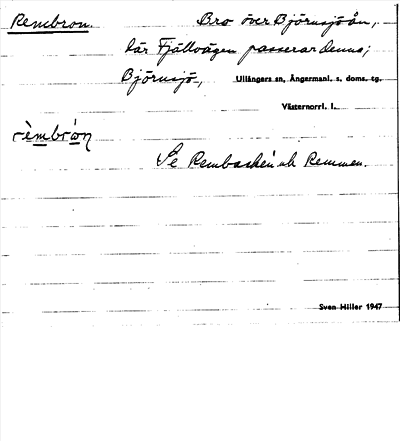 Rembron. Bro över Björnsjöån,
där Fjällvägen passerar denna;
Björnsjö, Ullångers sn, Ångermanl. s. doms. tg.
Västernorrl. l.
rèmbròn
Se Rembacken och Remmen.
Sven Hiller 1947